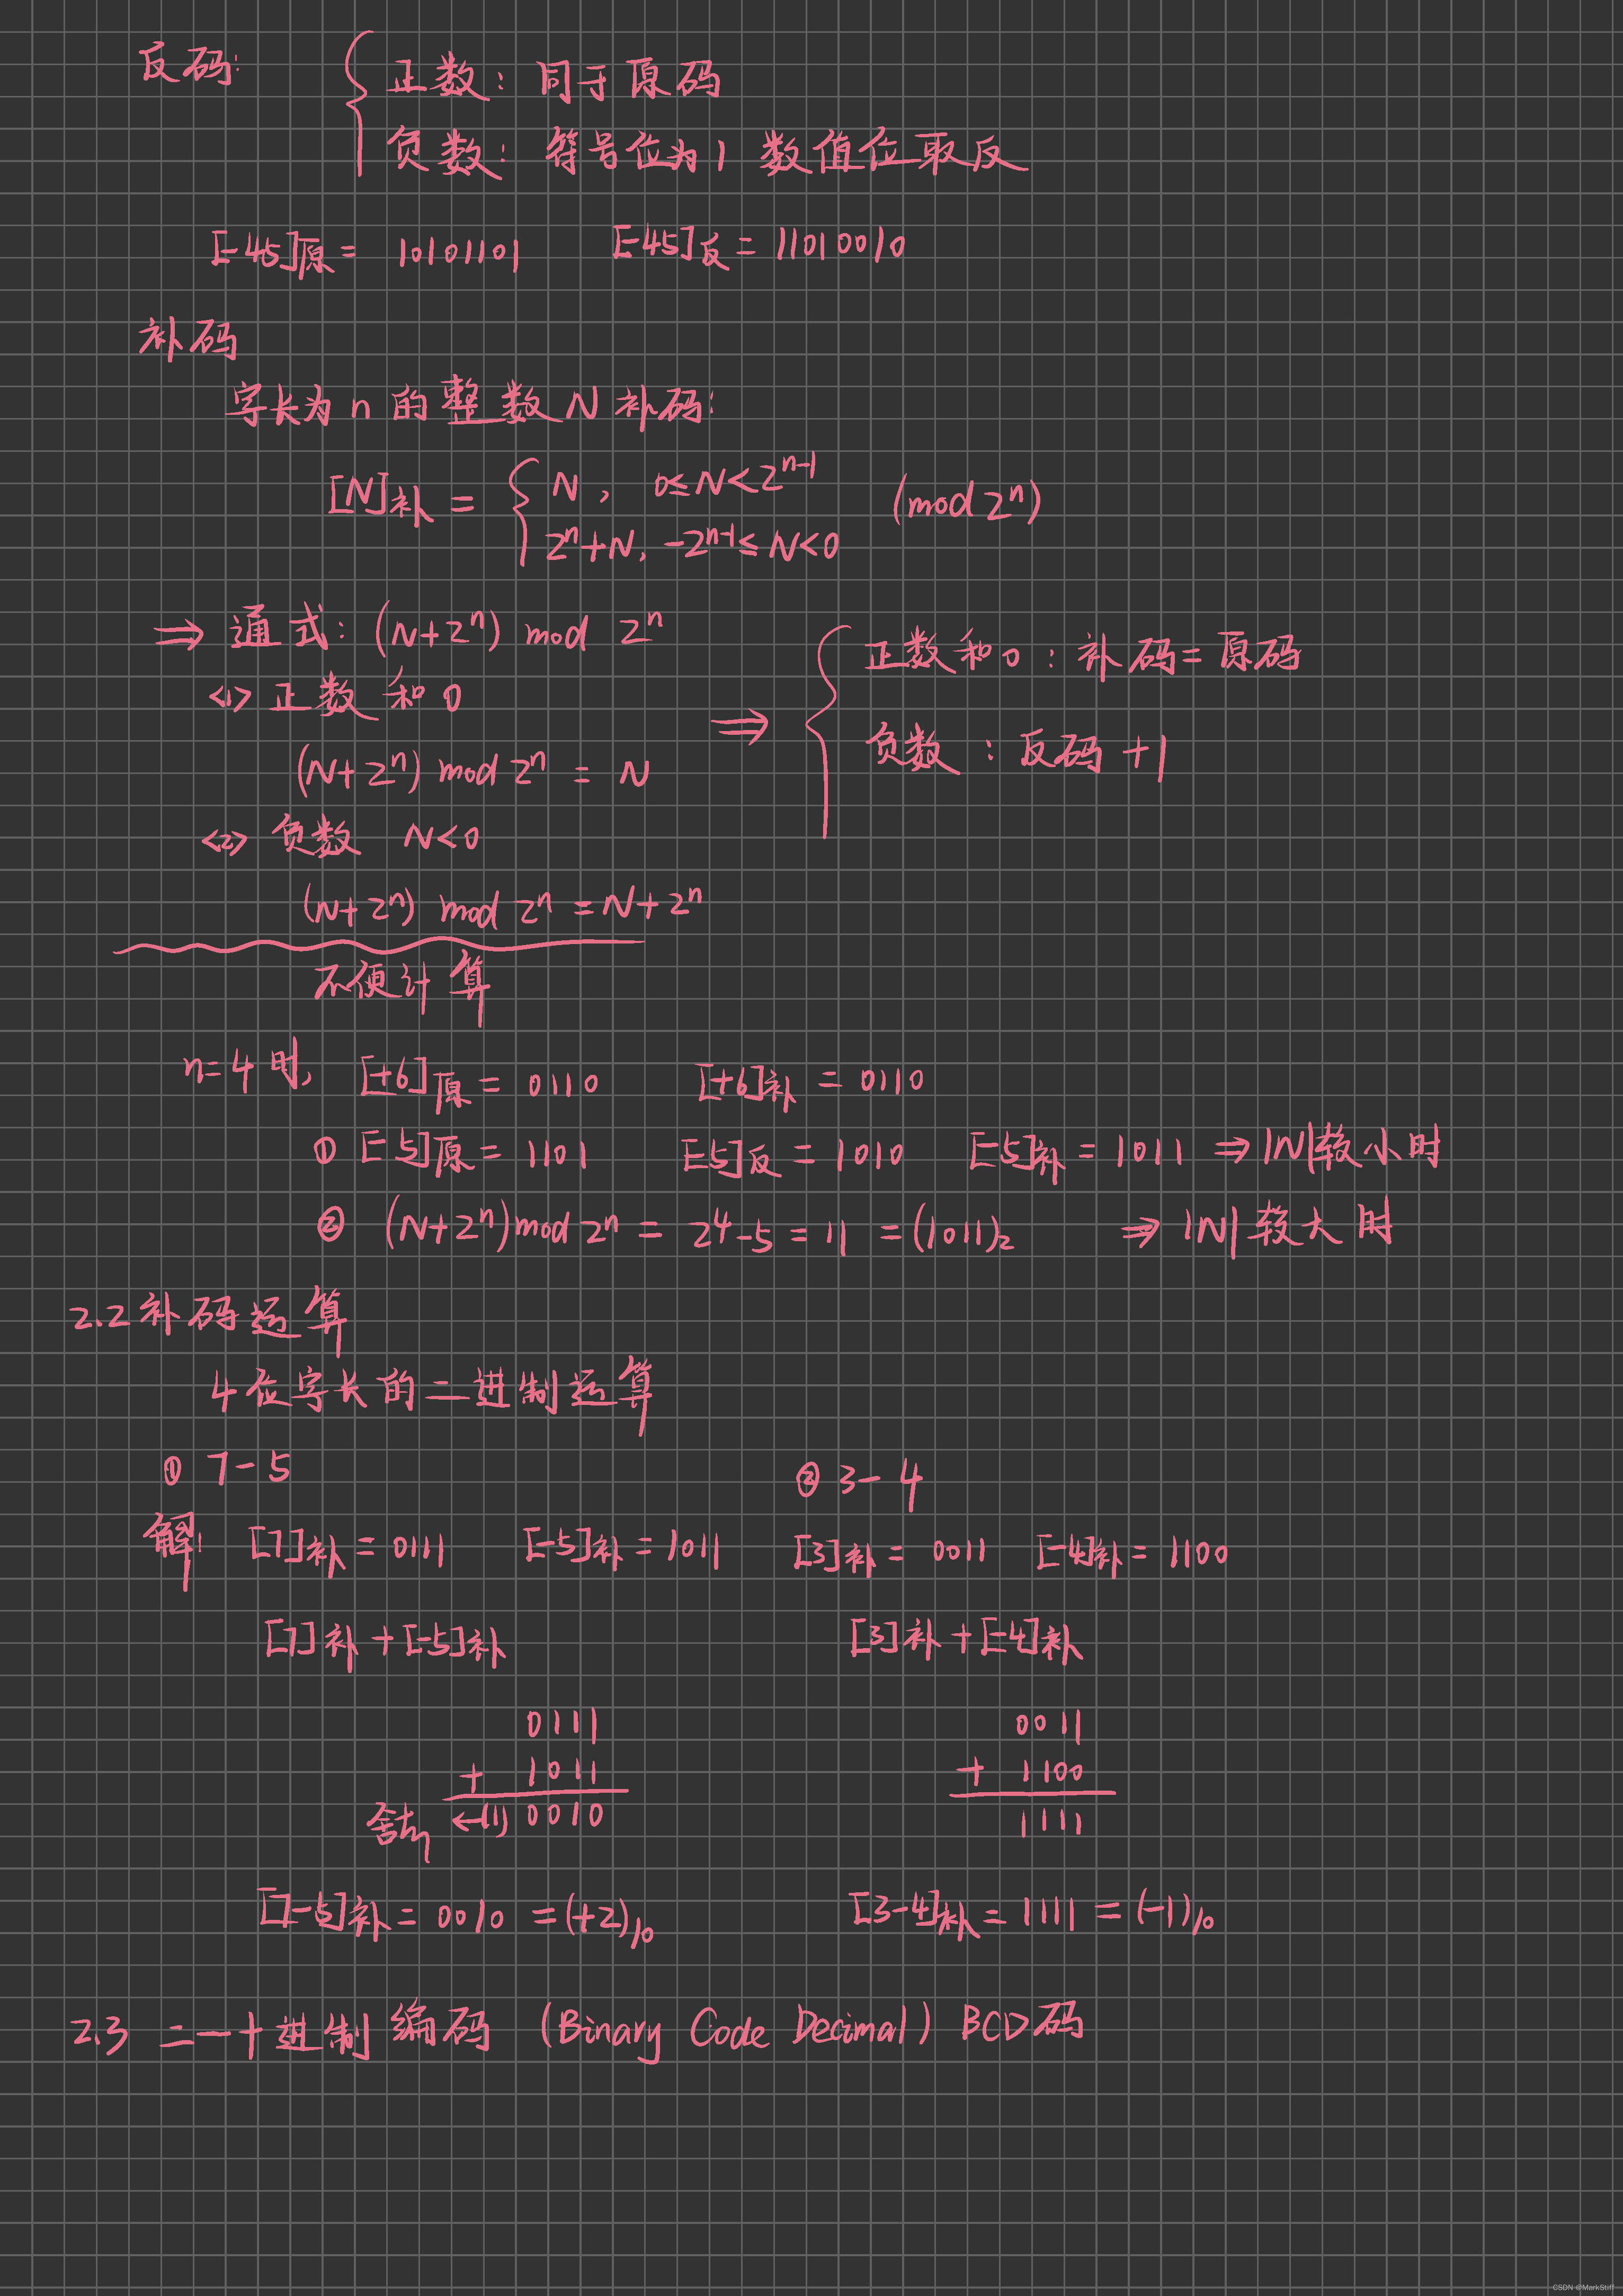 反码: { 正数: 同于原码
负数: 符号位为1 数值位取反
[-45]原 = 10101101 [-45]反 = 11010010
补码
字长为n的整数N补码:
[N]补 = { N, 0≤N<2^(n-1)
2^n+N, -2^(n-1)≤N<0 (mod 2^n)
⇒ 通式: (N+2^n) mod 2^n
<1> 正数和0
(N+2^n) mod 2^n = N
<2> 负数 N<0
(N+2^n) mod 2^n = N+2^n
不便计算
⇒ { 正数和0: 补码=原码
负数: 反码+1
n=4时, [+6]原 = 0110 [+6]补 = 0110
① [-5]原 = 1101 [-5]反 = 1010 [-5]补 = 1011 ⇒ |N|较小时
② (N+2^n) mod 2^n = 2^4-5 = 11 = (1011)₂ ⇒ |N|较大时
2.2 补码运算
4位字长的二进制运算
① 7-5 ② 3-4
解: [7]补 = 0111 [-5]补 = 1011 [3]补 = 0011 [-4]补 = 1100
[7]补+[-5]补 [3]补+[-4]补
0111 0011
+ 1011 + 1100
舍去 ←(1) 0010 1111
[7-5]补 = 0010 = (+2)₁₀ [3-4]补 = 1111 = (-1)₁₀
2.3 二一十进制编码 (Binary Code Decimal) BCD码
CSDN @MarkStiff